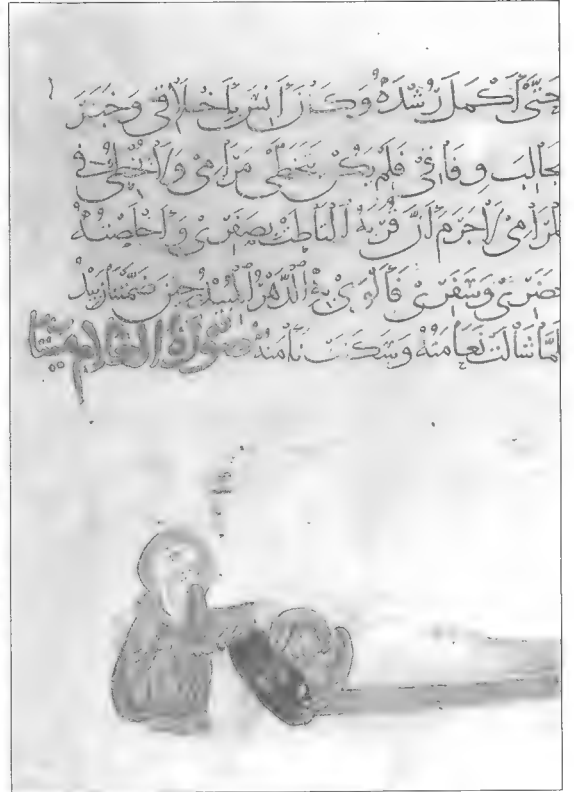 حَتَّى أَكْمَلَ رُشْدَهُ وَكَانَ أَنِسَ بِأَخْلَاقِي وَخَبَرَ
مَجَالِبَ وِفَاقِي فَلَمْ يَكُنْ يَتَخَطَّى مَرَامِي وَلَا يُخْطِئُ فِي
المَرَامِي لَا جَرَمَ أَنَّ قُرَبَهُ الْتَاطَتْ بِصَفَرِي وَأَخْلَصْتُهُ
لِحَضَرِي وَسَفَرِي فَأَلْوَى بِهِ الدَّهْرُ الْمُبِيدُ حِينَ ضَمَّتْنَا زَبِيدُ
فَلَمَّا شَالَتْ نَعَامَتُهُ وَسَكَنَتْ نَأْمَتُهُ صورة الغلام ميتا